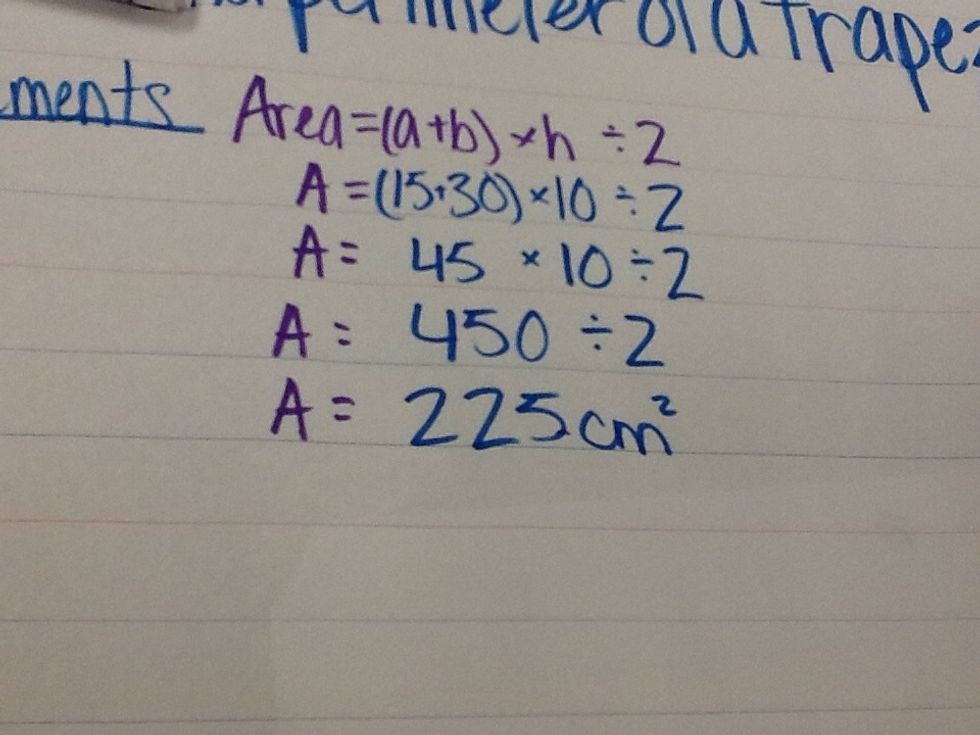 perimeter of a trape
ments Area=(a+b)×h ÷2
A =(15+30)×10 ÷2
A = 45 × 10 ÷2
A = 450 ÷2
A = 225cm²